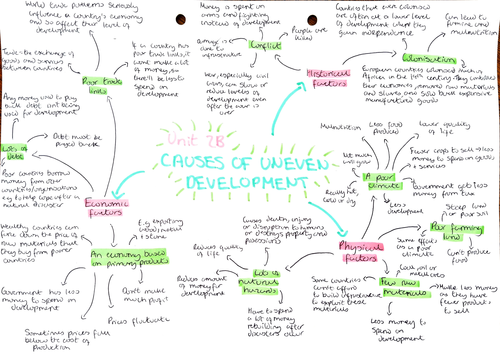 World trade patterns seriously
influence a country's economy
and so affect their level of
development
Trade - the exchange of
goods and services
between countries
If a country has
poor trade links, it
won't make a lot
of money, so
there'll be less to
spend on
development
Poor trade
links
Any money used to pay
back debt isn't being
used for development
Debt must be
payed back
Lots of
debt
Poor countries borrow
money from other
countries/organisations
e.g. to help cope after a
natural disaster
Economic
factors
Wealthy countries can
force down the price of
raw materials that
they buy from poorer
countries
E.g. exporting
wood, metal
+ stone
An economy based
on primary products
Government has less
money to spend on
development
Don't make
much profit
Prices fluctuate
Sometimes prices fall
below the cost of
production
Money is spent on
arms and fighting
instead of development
Damage is
done to
infrastructure
Conflict
People are
killed
War, especially civil
wars, can slow or
reduce levels of
development even
after the war is
over
Historical
factors
Countries that were colonised
are often at a lower level of
development when they
gain independence
Can lead to
famine and
malnutrition
Colonisation
European countries colonised much of
Africa in the 19th century. They controlled
their economies, removed raw materials
and slaves, and sold back expensive
manufactured goods
Unit 2B
CAUSES OF UNEVEN
DEVELOPMENT
Malnutrition
Less food
produced
Lower quality of
life
Not much
Fewer crops to sell = less
money to spend on goods
+ services
A poor
climate
Really hot,
cold or dry
Government get less
money from tax
Less
development
Steep land
or poor soil
Physical
factors
Same effects
as a poor
climate
Poor farming
land
Can't produce
food
Few raw
materials
Make less money
as they have
fewer products
to sell
Some countries
can't afford
to build infrastructure
to exploit these
materials
Less money to
spend on
development
Causes death, injury
or disruption to humans
or destroys property and
possessions
Reduces quality
of life
Lots of
natural
hazards
Reduces amount
of money for
development
Have to spend
a lot of money
rebuilding after
disasters occur